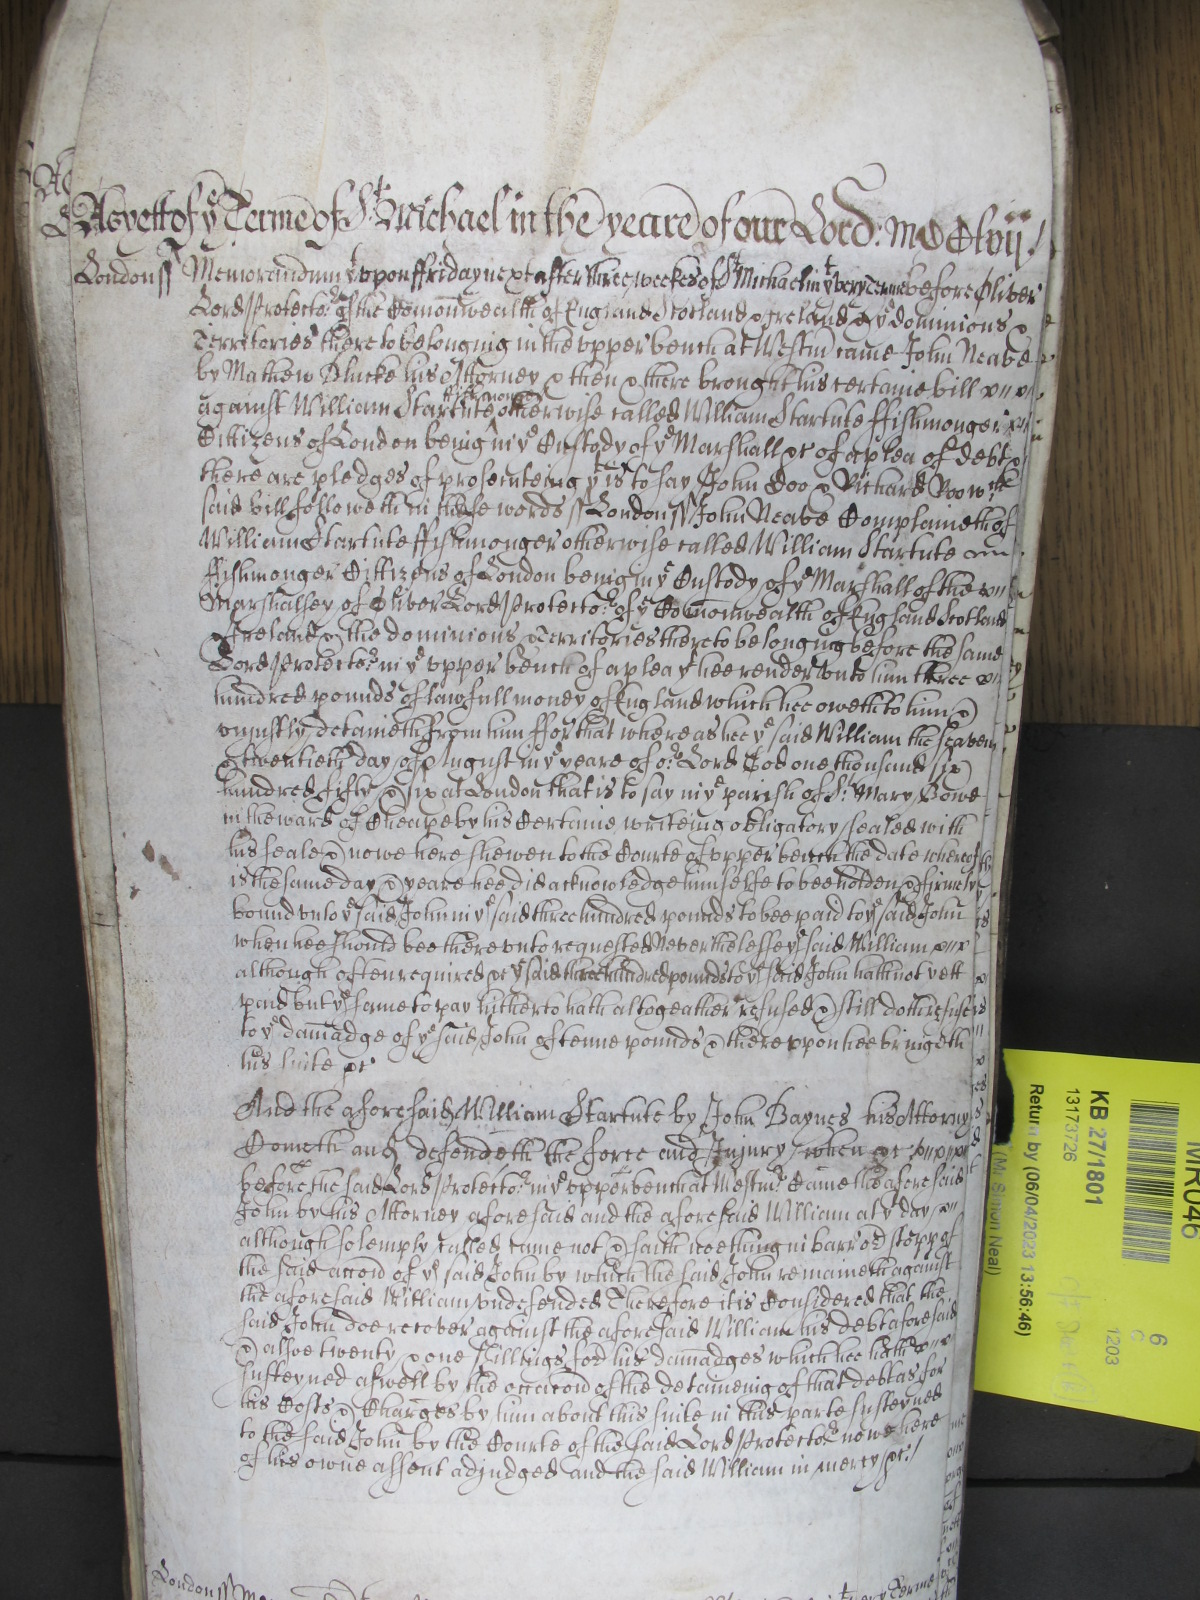 As yett of ye Terme of St. Michael in the yeare of our Lord: MDClvij /
London ss Memorandum yt uppon ffriday next after three weekes of St Michael in ys very Terme before Oliver
Lord Protector of the Comonwealth of England Scotland & Ireland & ye dominions &
Territories thereto belonging in the upper bench at Westmr came John Neave
by Mathew Plucke his Attorney & then & there brought his certaine bill
against William Startute ffishmonger otherwise called William Startute ffishmonger
Cittizens of London being in ye Custody of ye Marshall &c of a plea of debt &
there are pledges of prosecuteing yt is to say John Doo & Richard Roo wch
said bill followeth in these words ss London ss John Neave Complaineth of
William Startute ffishmonger otherwise called William Startute
ffishmonger Cittizens of London being in ye Custody of ye Marshall of the
Marshalsey of Oliver Lord Protector of ye Comonwealth of England Scotland
& Ireland & the dominions & Territories thereto belonging before the same
Lord Protector in ye upper bench of a plea yt hee render unto him three
hundred pounds of lawfull money of England which hee oweth to him &
uniustly detaineth from him ffor that whereas hee ye said William the seaven
& twentieth day of August in ye yeare of or Lord God one thousand six
hundred fifty & six at London that is to say in ye parish of St Mary Bowe
in the ward of Cheape by his Certaine writeing obligatory sealed with
his seale & nowe here shewen to the Courte of upper bench the date whereof
is the same day & yeare hee did acknowledge himselfe to bee holden & firmely
bound unto ye said John in ye said three hundred pounds to bee paid to ye said John
when hee should bee thereunto requested Neverthelesse ye said William
although often required &c ye said three hundred pounds to ye said John hath not yett
paid but ye same to pay hitherto hath altogeather refused & still doth refuse
to ye damadge of ye said John of tenne pounds & thereuppon hee bringeth
his suite &c
And the aforesaid William Startute by John Baynes his Attorny
Cometh and defendeth the force and Injury when &c
before the said Lord Protector in ye upper bench at Westmr Came the aforesaid
John by his Attorney aforesaid and the aforesaid William at yt day
although solemply called came not & saith noething in barr or stopp of
the said accon of ye said John by which the said John remaineth against
the aforesaid William undefended Therefore it is Considered that the
said John doe recover against the aforesaid William his debt aforesaid
& alsoe twenty & one shillings for his damadges which hee hath
susteyned aswell by the occacon of the deteineing of that debt as for
his Costs & Charges by him about this suite in this parte susteyned
to the said John by the Courte of the said Lord Protector nowe here
of his owne assent adjudged and the said William in mercy &c /
London ss
very Terme
MR046
KB 27/1801
13173726
Return by (06/04/2023 13:56:46)
(Mr Simon Neal)
6
6
1203